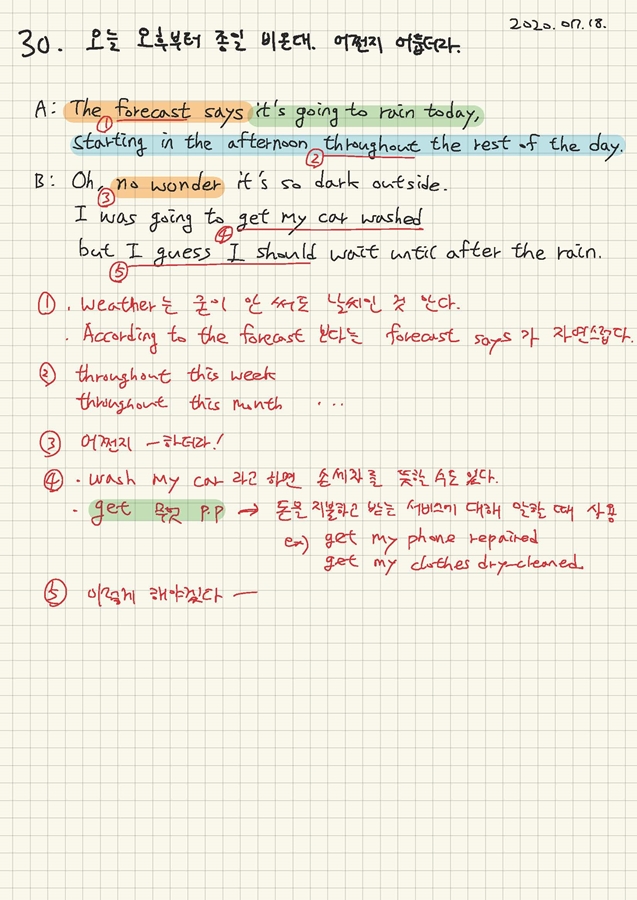 2020. 07. 18.
30. 오늘 오후부터 종일 비온대. 어쩐지 어둡더라.
A: The forecast says it's going to rain today,
①
starting in the afternoon throughout the rest of the day.
②
B: Oh, no wonder it's so dark outside.
③
I was going to get my car washed
④
but I guess I should wait until after the rain.
⑤
① . weather는 굳이 안 써도 날씨인 것 안다.
. According to the forecast 보다는 forecast says가 자연스럽다.
② throughout this week
throughout this month ...
③ 어쩐지 ~하더라!
④ . wash my car 라고 하면 손세차를 뜻할 수도 있다.
. get 목적 P.P → 돈을 지불하고 받는 서비스에 대해 말할 때 사용
ex) get my phone repaired
get my clothes dry-cleaned
⑤ 이렇게 해야겠다 ―